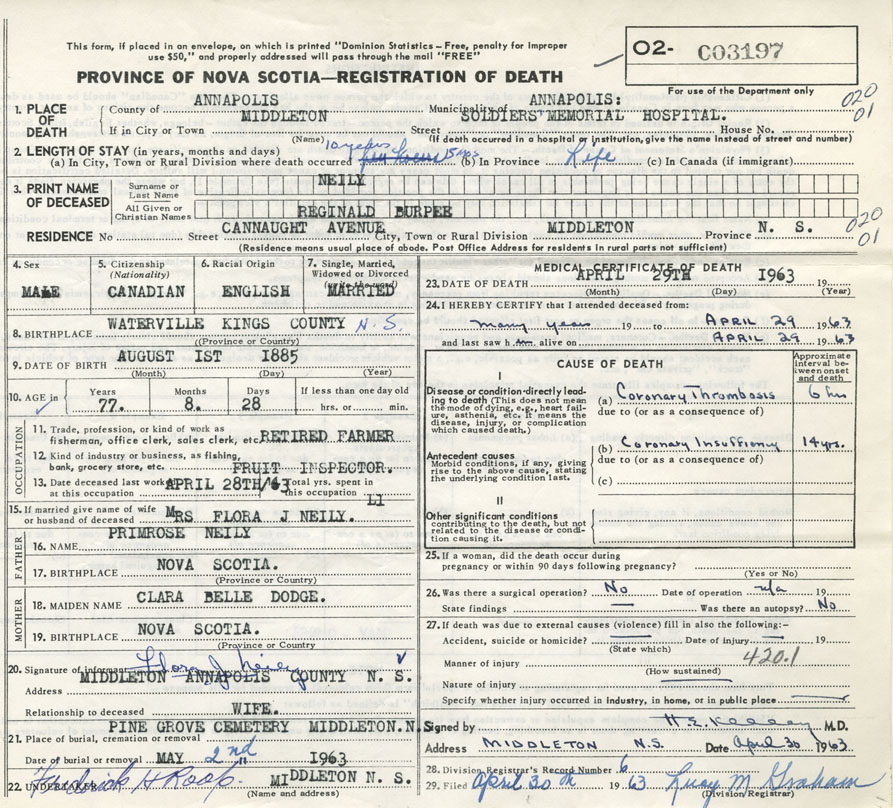 This form, if placed in an envelope, on which is printed "Dominion Statistics—Free, penalty for improper
use $50," and properly addressed will pass through the mail "FREE"
02- C03197
PROVINCE OF NOVA SCOTIA—REGISTRATION OF DEATH
For use of the Department only
1. PLACE OF DEATH
County of ANNAPOLIS Municipality of ANNAPOLIS: 020
If in City or Town MIDDLETON Street SOLDIERS' MEMORIAL HOSPITAL. House No. 01
(Name) (If death occurred in a hospital or institution, give the name instead of street and number)
2. LENGTH OF STAY (in years, months and days)
(a) In City, Town or Rural Division where death occurred 10 years 5 mos (b) In Province Life (c) In Canada (if immigrant)
3. PRINT NAME OF DECEASED
Surname or Last Name NEILY
All Given or Christian Names REGINALD BURPEE
RESIDENCE No Street CANNAUGHT AVENUE City, Town or Rural Division MIDDLETON Province N. S. 020 01
(Residence means usual place of abode. Post Office Address for residents in rural parts not sufficient)
4. Sex MALE
5. Citizenship (Nationality) CANADIAN
6. Racial Origin ENGLISH
7. Single, Married, Widowed or Divorced (write the word) MARRIED
8. BIRTHPLACE WATERVILLE KINGS COUNTY N.S.
(Province or Country)
9. DATE OF BIRTH AUGUST 1ST 1885
(Month) (Day) (Year)
10. AGE in Years 77. Months 8. Days 28 If less than one day old hrs. or min.
OCCUPATION
11. Trade, profession, or kind of work as fisherman, office clerk, sales clerk, etc. RETIRED FARMER
12. Kind of industry or business, as fishing, bank, grocery store, etc. FRUIT INSPECTOR.
13. Date deceased last worked at this occupation APRIL 28TH/63 Total yrs. spent in this occupation
15. If married give name of wife or husband of deceased MRS FLORA J NEILY.
FATHER
16. NAME PRIMROSE NEILY
17. BIRTHPLACE NOVA SCOTIA.
(Province or Country)
MOTHER
18. MAIDEN NAME CLARA BELLE DODGE.
19. BIRTHPLACE NOVA SCOTIA.
(Province or Country)
20. Signature of informant Flora J Neily
Address MIDDLETON ANNAPOLIS COUNTY N. S.
Relationship to deceased WIFE.
21. Place of burial, cremation or removal PINE GROVE CEMETERY MIDDLETON.N.S
Date of burial or removal MAY 2nd 1963
22. UNDERTAKER H Roop. MIDDLETON N. S.
(Name and address)
MEDICAL CERTIFICATE OF DEATH
23. DATE OF DEATH APRIL 29TH 1963
(Month) (Day) (Year)
24. I HEREBY CERTIFY that I attended deceased from:
many years 19 to APRIL 29 1963
and last saw him alive on APRIL 29 1963
CAUSE OF DEATH
Approximate interval between onset and death
I
Disease or condition directly leading to death (This does not mean the mode of dying, e.g., heart failure, asthenia, etc. It means the disease, injury, or complication which caused death.)
(a) Coronary Thrombosis 6 hrs
due to (or as a consequence of)
Antecedent causes
Morbid conditions, if any, giving rise to the above cause, stating the underlying condition last.
(b) Coronary Insufficiency 14 yrs.
due to (or as a consequence of)
(c)
II
Other significant conditions
contributing to the death, but not related to the disease or condition causing it.
25. If a woman, did the death occur during pregnancy or within 90 days following pregnancy?
(Yes or No)
26. Was there a surgical operation? No Date of operation n/a 19
State findings — Was there an autopsy? No
27. If death was due to external causes (violence) fill in also the following:-
Accident, suicide or homicide? — Date of injury — 19
(State which)
Manner of injury 420.1
(How sustained)
Nature of injury
Specify whether injury occurred in Industry, in home, or in public place
Signed by M.D.
Address MIDDLETON N.S. Date April 30 1963
28. Division Registrar's Record Number 6
29. Filed April 30th 1963 Lucy M Graham
(Division Registrar)